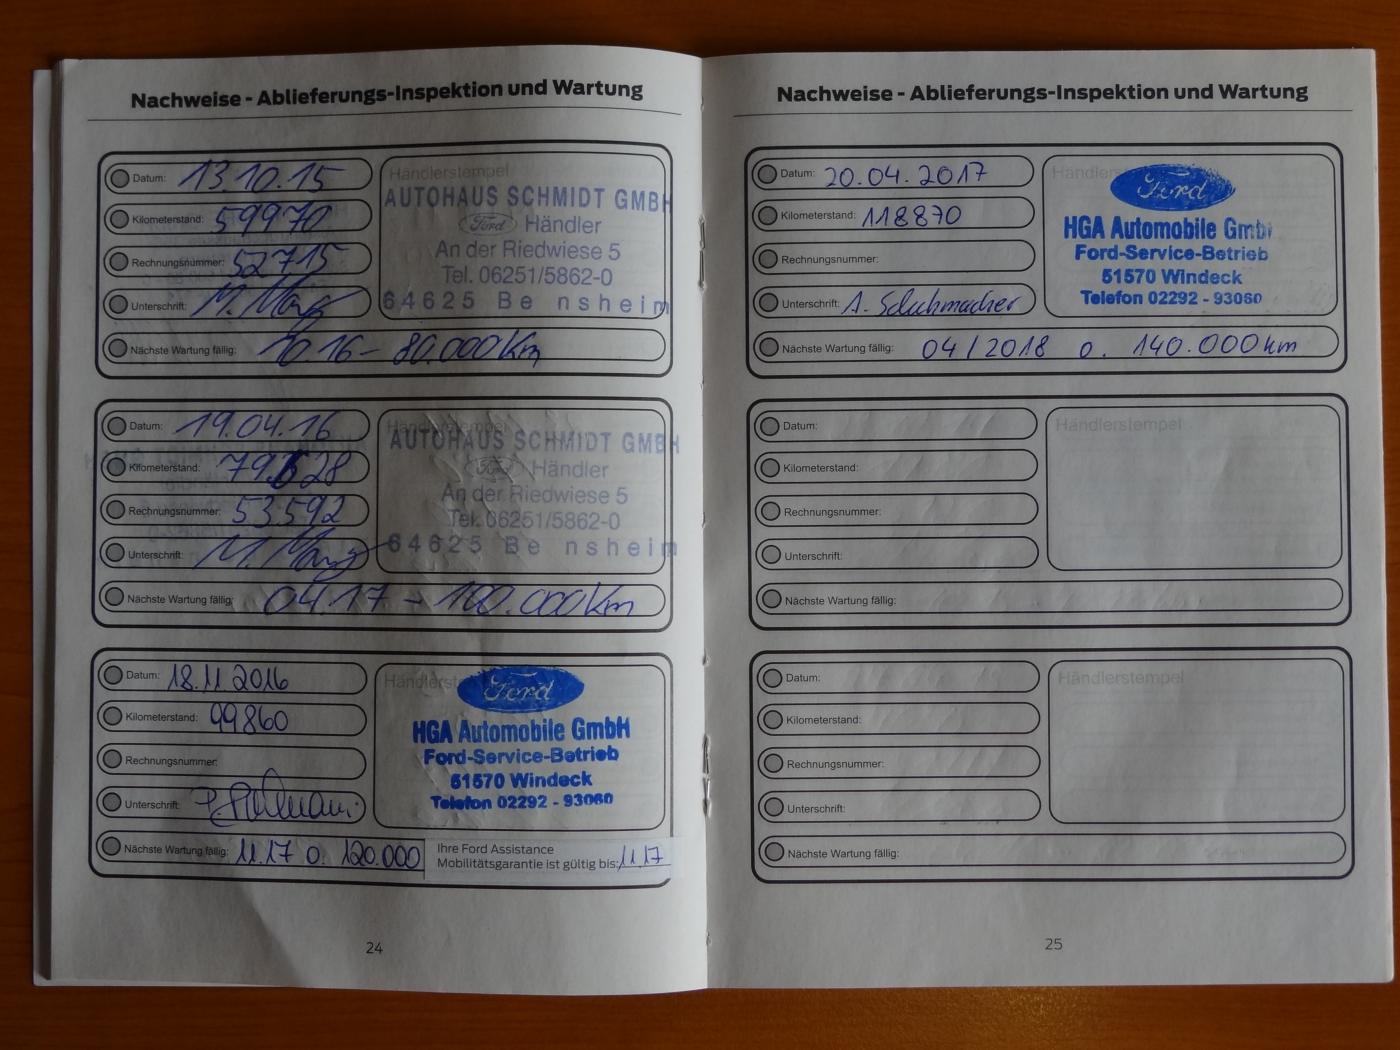 Nachweise - Ablieferungs-Inspektion und Wartung
Datum: 13.10.15
Kilometerstand: 59970
Rechnungsnummer: 52715
Unterschrift:
Nächste Wartung fällig: 10.16 - 80.000 Km
Händlerstempel
AUTOHAUS SCHMIDT GMBH
Ford Händler
An der Riedwiese 5
Tel. 06251/5862-0
64625 Bensheim
Datum: 19.04.16
Kilometerstand: 79.628
Rechnungsnummer: 53592
Unterschrift:
Nächste Wartung fällig: 04.17 - 100.000 Km
Händlerstempel
AUTOHAUS SCHMIDT GMBH
Ford Händler
An der Riedwiese 5
Tel. 06251/5862-0
64625 Bensheim
Datum: 18.11.2016
Kilometerstand: 99860
Rechnungsnummer:
Unterschrift:
Nächste Wartung fällig: 11.17 o. 120.000
Ford
HGA Automobile GmbH
Ford-Service-Betrieb
51570 Windeck
Telefon 02292 - 93060
Ihre Ford Assistance
Mobilitätsgarantie ist gültig bis: 11.17
24
Nachweise - Ablieferungs-Inspektion und Wartung
Datum: 20.04.2017
Kilometerstand: 118870
Rechnungsnummer:
Unterschrift: A. Schuhmacher
Nächste Wartung fällig: 04/2018 o. 140.000 km
Ford
HGA Automobile GmbH
Ford-Service-Betrieb
51570 Windeck
Telefon 02292 - 93060
Datum:
Kilometerstand:
Rechnungsnummer:
Unterschrift:
Nächste Wartung fällig:
Händlerstempel
Datum:
Kilometerstand:
Rechnungsnummer:
Unterschrift:
Nächste Wartung fällig:
Händlerstempel
25